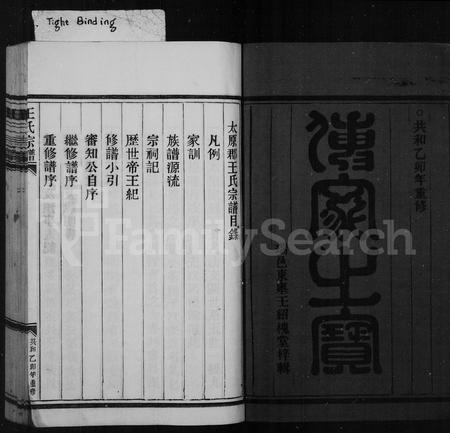 Tight Binding
共和乙卯年重修
傳家之寶
邑東皋王紹槐堂梓輯
太原郡王氏宗譜目錄
凡例
家訓
族譜源流
宗祠記
歷世帝王紀
修譜小引
審知公自序
繼修譜序
重修譜序
王氏宗譜
共和乙卯年重修
FamilySearch